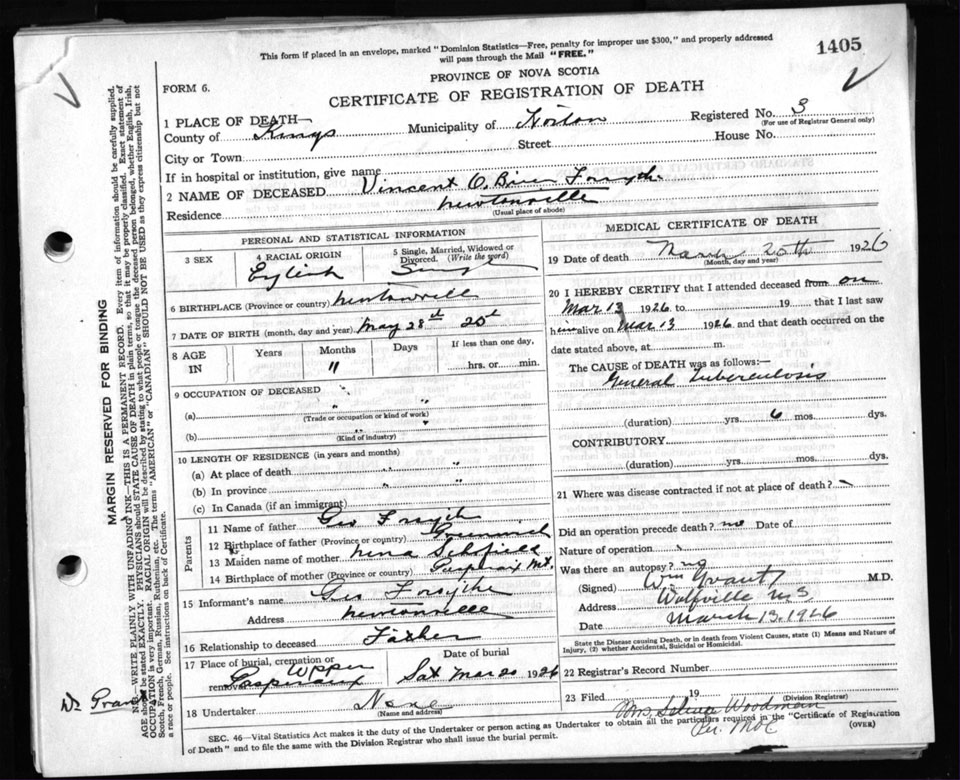 This form if placed in an envelope, marked "Dominion Statistics—Free, penalty for improper use $300," and properly addressed
will pass through the Mail "FREE."
1405
PROVINCE OF NOVA SCOTIA
FORM 6.
CERTIFICATE OF REGISTRATION OF DEATH
1 PLACE OF DEATH—
County of Kings Municipality of Horton Registered No. 3
(For use of Registrar General only)
Street House No.
City or Town
If in hospital or institution, give name
2 NAME OF DECEASED Vincent O. Forsythe
Residence Newtonville
(Usual place of abode)
PERSONAL AND STATISTICAL INFORMATION
3 SEX 4 RACIAL ORIGIN 5 Single, Married, Widowed or Divorced. (Write the word)
English Single
6 BIRTHPLACE (Province or country) Newtonville
7 DATE OF BIRTH (month, day and year) May 28th
8 AGE IN Years Months Days If less than one day,
11 hrs. or min.
9 OCCUPATION OF DECEASED
(a)
(Trade or occupation or kind of work)
(b)
(Kind of industry)
10 LENGTH OF RESIDENCE (in years and months)
(a) At place of death " "
(b) In province " "
(c) In Canada (if an immigrant)
Parents
11 Name of father Geo Forsythe
12 Birthplace of father (Province or country) Greenwich
13 Maiden name of mother Nina Schofield
14 Birthplace of mother (Province or country) Gaspereaux Mt.
15 Informant's name Geo Forsythe
Address Newtonville
16 Relationship to deceased Father
17 Place of burial, cremation or removal Upper Gaspereaux
Date of burial
Sat Mar 20 1926
18 Undertaker None
(Name and address)
MEDICAL CERTIFICATE OF DEATH
19 Date of death March 20th 1926
(Month, day and year)
20 I HEREBY CERTIFY that I attended deceased from on
Mar 13 1926 to 19 that I last saw
him alive on Mar 13 1926 and that death occurred on the
date stated above, at m.
The CAUSE OF DEATH was as follows:—
General Tuberculosis
(duration) yrs. 6 mos. dys.
CONTRIBUTORY
(duration) yrs. mos. dys.
21 Where was disease contracted if not at place of death?
Did an operation precede death? no Date of
Nature of operation
Was there an autopsy? no
(Signed) Wm Grant M.D.
Address Wolfville N.S
Date March 13, 1926
State the Disease causing Death, or in death from Violent Causes, state (1) Means and Nature of
Injury, (2) whether Accidental, Suicidal or Homicidal.
22 Registrar's Record Number
23 Filed 19
(Division Registrar)
Mrs. Woodman
SEC. 46—Vital Statistics Act makes it the duty of the Undertaker or person acting as Undertaker to obtain all the particulars required in the "Certificate of Registration
of Death" and to file the same with the Division Registrar who shall issue the burial permit.
(OVER)
MARGIN RESERVED FOR BINDING
N.B.—WRITE PLAINLY WITH UNFADING INK—THIS IS A PERMANENT RECORD. Every item of information should be carefully supplied.
AGE should be stated EXACTLY. PHYSICIANS should STATE CAUSE OF DEATH in plain terms, so that it may be properly classified. Exact statement of
OCCUPATION is very important. RACIAL ORIGIN will be described by stating to what people or tongue the deceased person belonged, whether English, Irish,
Scotch, French, German, Russian, Ruthenian, etc. The terms "AMERICAN" or "CANADIAN" SHOULD NOT BE USED as they express citizenship but not
a race or people. See instructions on back of Certificate.
Dr. Grant